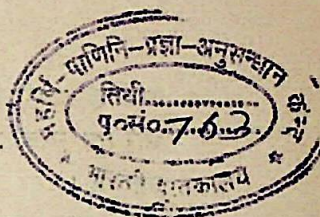 महर्षि-पाणिनि-प्रज्ञा-अनुसन्धान
तिथी...............
पु०सं० 763